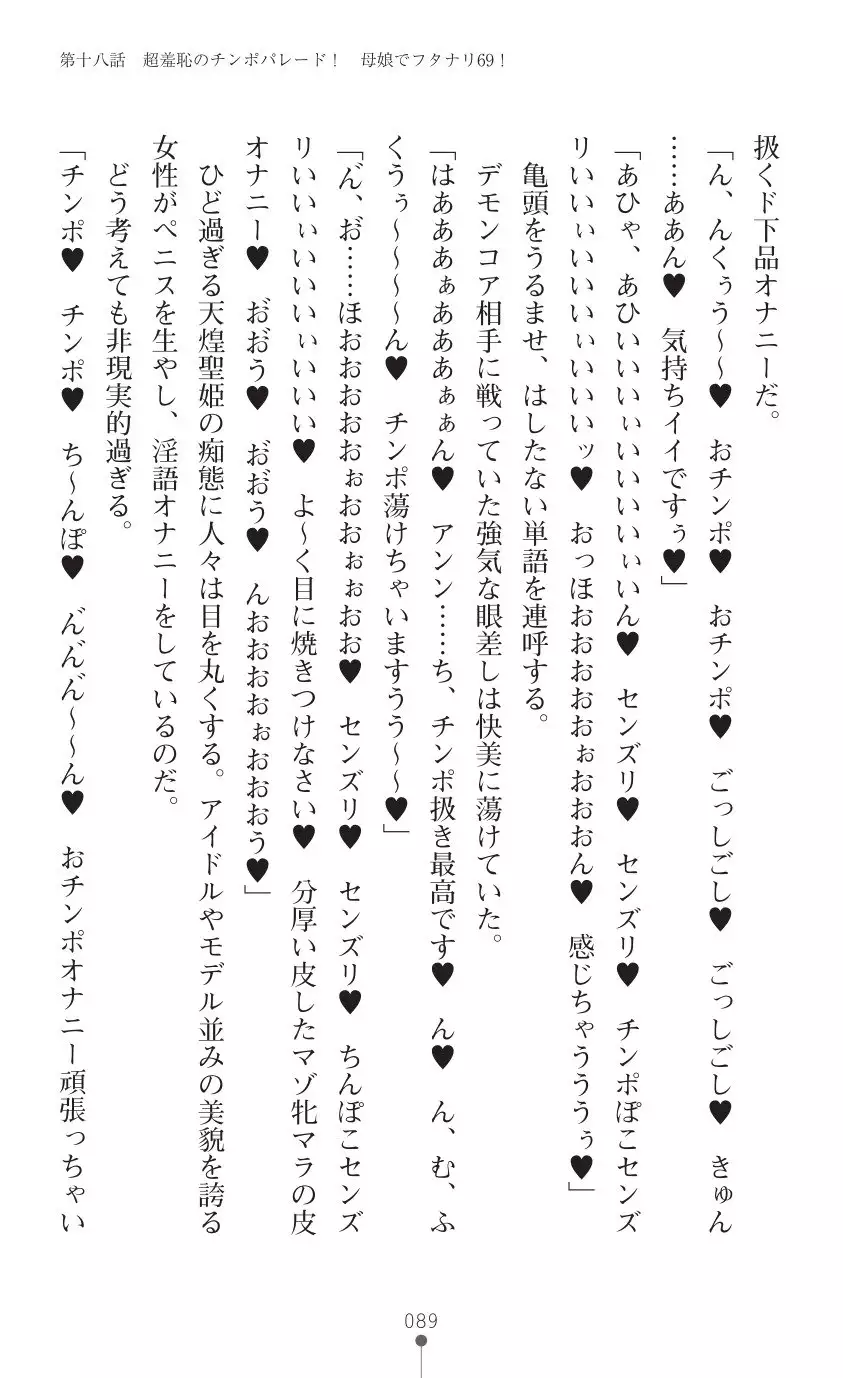 第十八話　超羞恥のチンポパレード！　母娘でフタナリ69！
扱くド下品オナニーだ。
「ん、んくぅう～～♥　おチンポ♥　おチンポ♥　ごっしごし♥　ごっしごし♥　きゅん
……ああん♥　気持ちイイですぅ♥」
「あひゃ、あひいいいぃいいいいいぃいん♥　センズリ♥　センズリ♥　チンポぽこセンズ
リいいぃいいいいぃいいいッ♥　おっほおおおおおぉおおおん♥　感じちゃうううぅ♥」
亀頭をうるませ、はしたない単語を連呼する。
デモンコア相手に戦っていた強気な眼差しは快美に蕩けていた。
「はあああぁあああぁぁん♥　アンン……ち、チンポ扱き最高です♥　ん♥　ん、む、ふ
くうぅ～～～～ん♥　チンポ蕩けちゃいますうう～～♥」
「ん゛、お゛……ほおおおおおぉおおぉぉおお♥　センズリ♥　センズリ♥　ちんぽこセンズ
リいいぃいいいいぃいいい♥　よ～く目に焼きつけなさい♥　分厚い皮したマゾ牝マラの皮
オナニー♥　お゛お゛う♥　お゛お゛う♥　んおおおおぉおおおう♥」
ひど過ぎる天煌聖姫の痴態に人々は目を丸くする。アイドルやモデル並みの美貌を誇る
女性がペニスを生やし、淫語オナニーをしているのだ。
どう考えても非現実的過ぎる。
「チンポ♥　チンポ♥　ち～んぽ♥　ん゛ん゛ん゛～～ん♥　おチンポオナニー頑張っちゃい
089